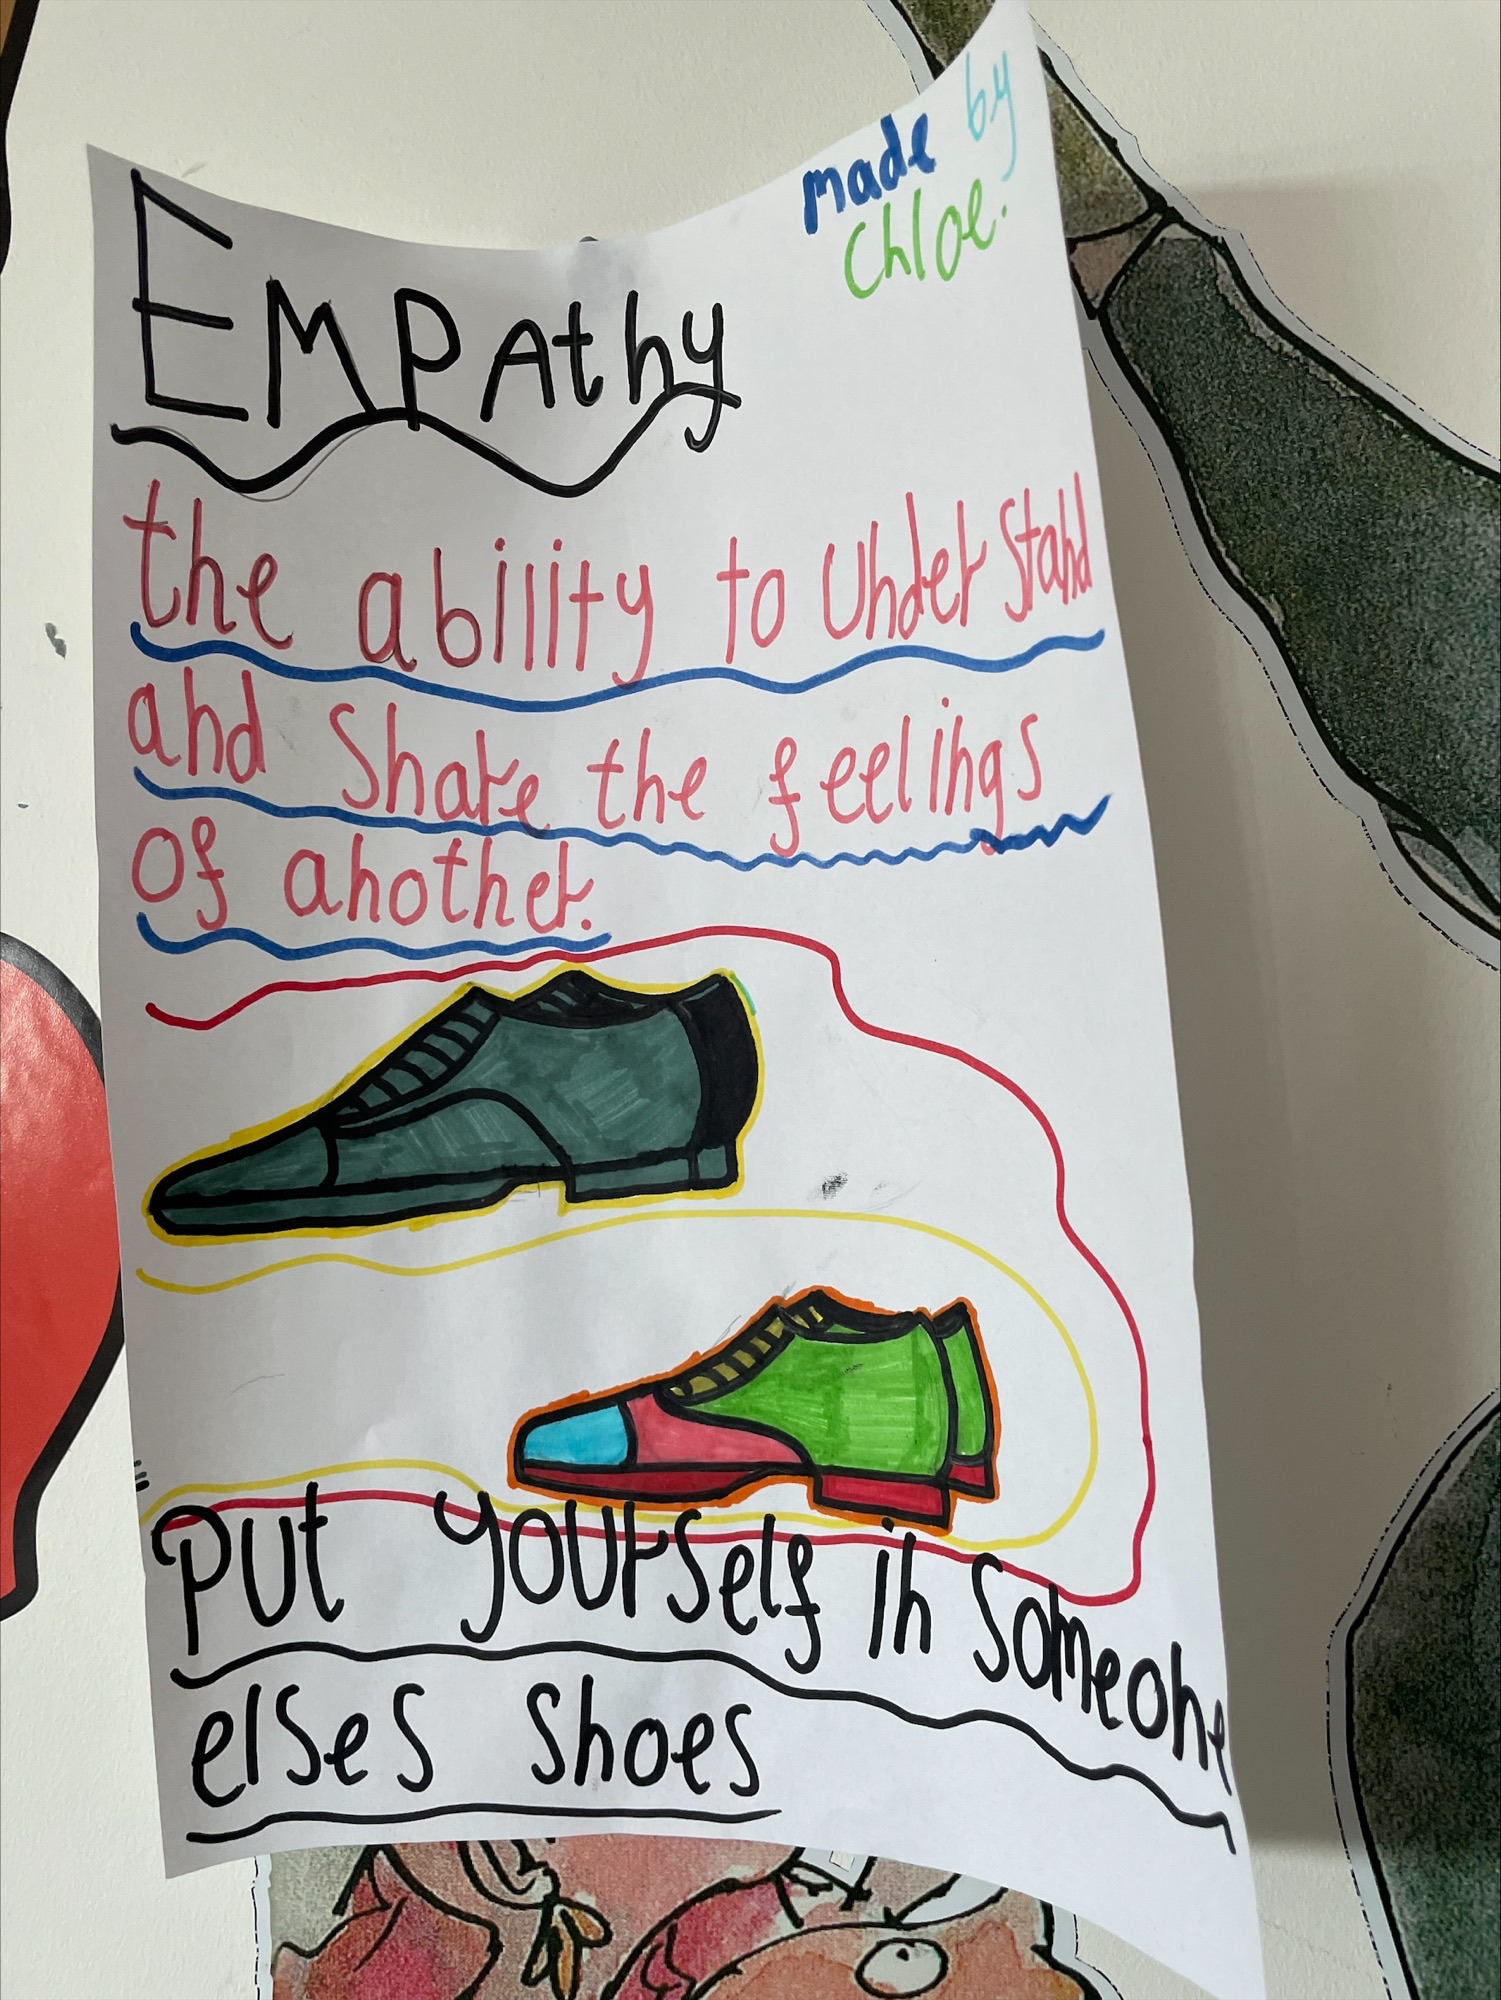 made by
Chloe.
EMPAthy
the ability to Understand
and Share the feelings
of another.
Put yourself in Someone
elses Shoes